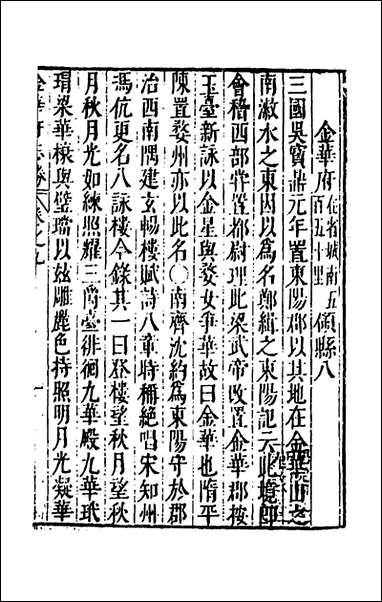 金華府在省城南五百五十里領縣八
三國吳寶鼎元年置東陽郡以其地在金華山之
南瀫水之東因以為名鄭緝之東陽記云此境即
會稽西部常置都尉理此梁武帝改置金華郡按
玉臺新詠以金星與婺女爭華故曰金華也隋平
陳置婺州亦以此名○南齊沈約為東陽守於郡
治西南隅建玄暢樓賦詩八章時稱絕唱宋知州
馮伉更名八詠樓今錄其一曰登樓望秋月望秋
月秋月光如練照耀三爵臺徘徊九華殿九華玳
瑁梁華榱與璧璫以茲雕麗色持照明月光凝華